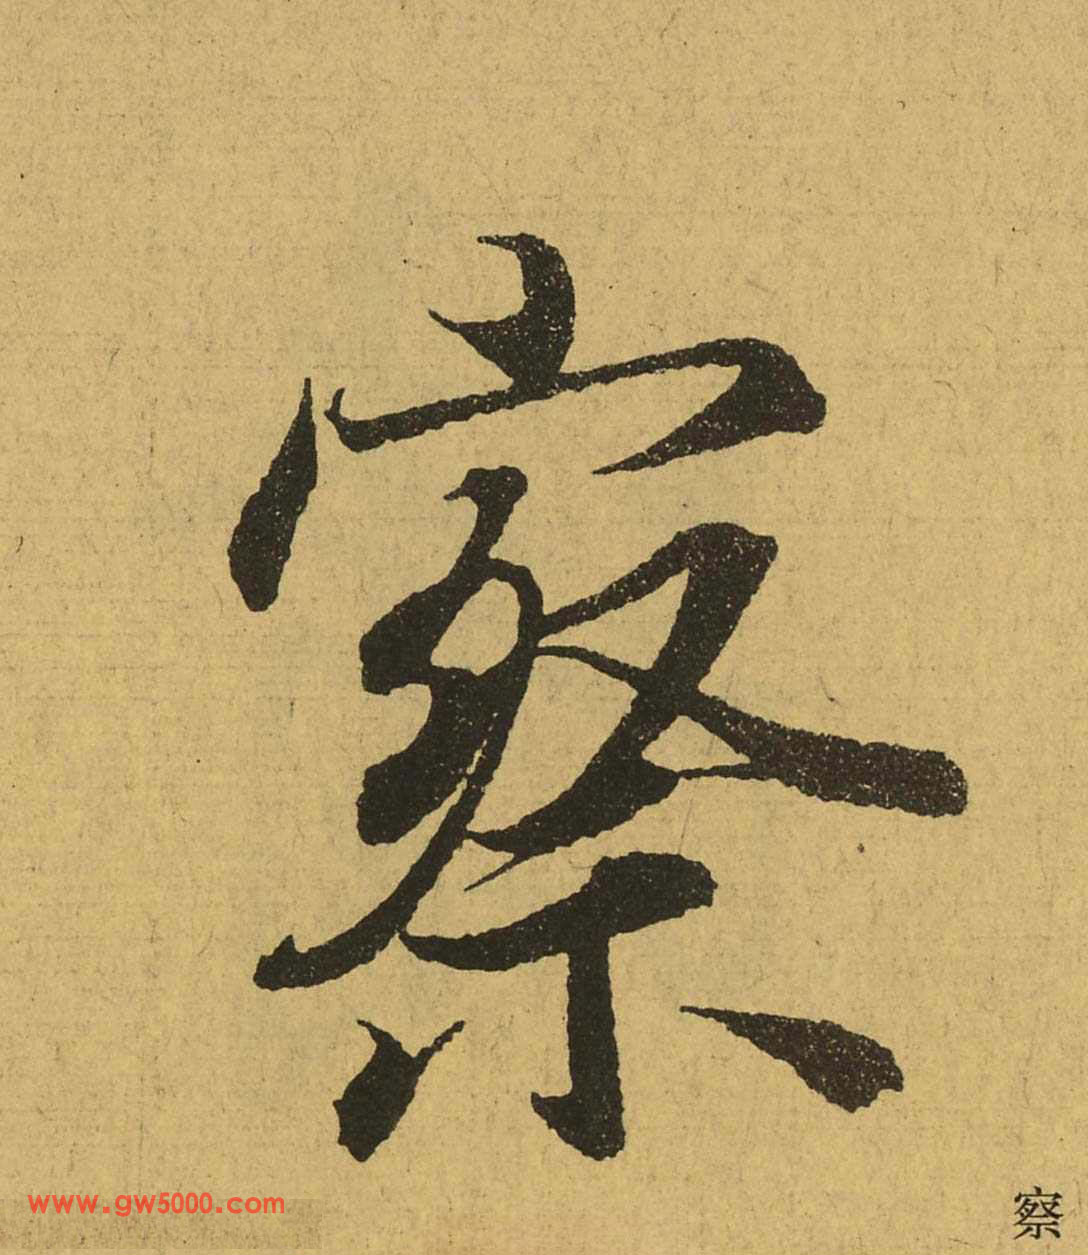 察
www.gw5000.com
察